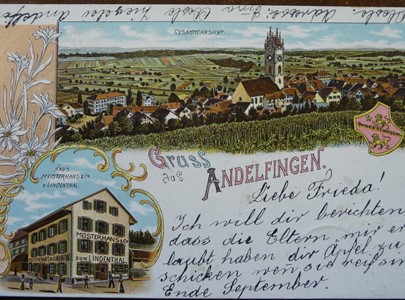 GESAMMTANSICHT.
HAUS
MEISTERHANS & CO
Z. LINDENTHAL.
MEISTERHANS & Co
ZUM LINDENTHAL
Gruss
aus
ANDELFINGEN.
Liebe Frieda.
Ich will dir berichten
dass die Eltern, mir er
laubt haben dir Äpfel zu
schicken wen sie reif sin
Ende September.